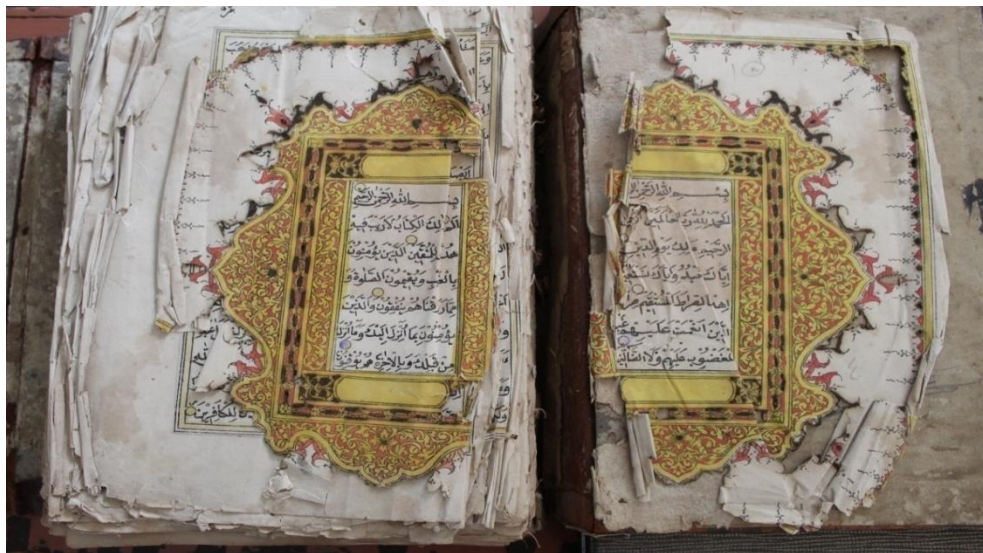 بِسْمِ اللهِ الرَّحْمٰنِ
الْحَمْدُ لِلّٰهِ رَبِّ الْعَالَمِينَ
الرَّحِيمِ مٰلِكِ يَوْمِ الدِّينِ
إِيَّاكَ نَعْبُدُ وَإِيَّاكَ نَسْتَعِينُ
اهْدِنَا الصِّرَاطَ الْمُسْتَقِيمَ صِرَاطَ
الَّذِينَ أَنْعَمْتَ عَلَيْهِمْ غَيْرِ
الْمَغْضُوبِ عَلَيْهِمْ وَلَا الضَّالِّينَ
بِسْمِ اللهِ الرَّحْمٰنِ الرَّحِيمِ
الم ذٰلِكَ الْكِتَابُ لَا رَيْبَ فِيهِ
هُدًى لِلْمُتَّقِينَ الَّذِينَ يُؤْمِنُونَ
بِالْغَيْبِ وَيُقِيمُونَ الصَّلٰوةَ وَ
مِمَّا رَزَقْنَاهُمْ يُنْفِقُونَ وَالَّذِينَ
يُؤْمِنُونَ بِمَا أُنْزِلَ إِلَيْكَ وَمَا أُنْزِلَ
مِنْ قَبْلِكَ وَبِالْآخِرَةِ هُمْ يُوقِنُونَ
لِلْكَافِرِينَ